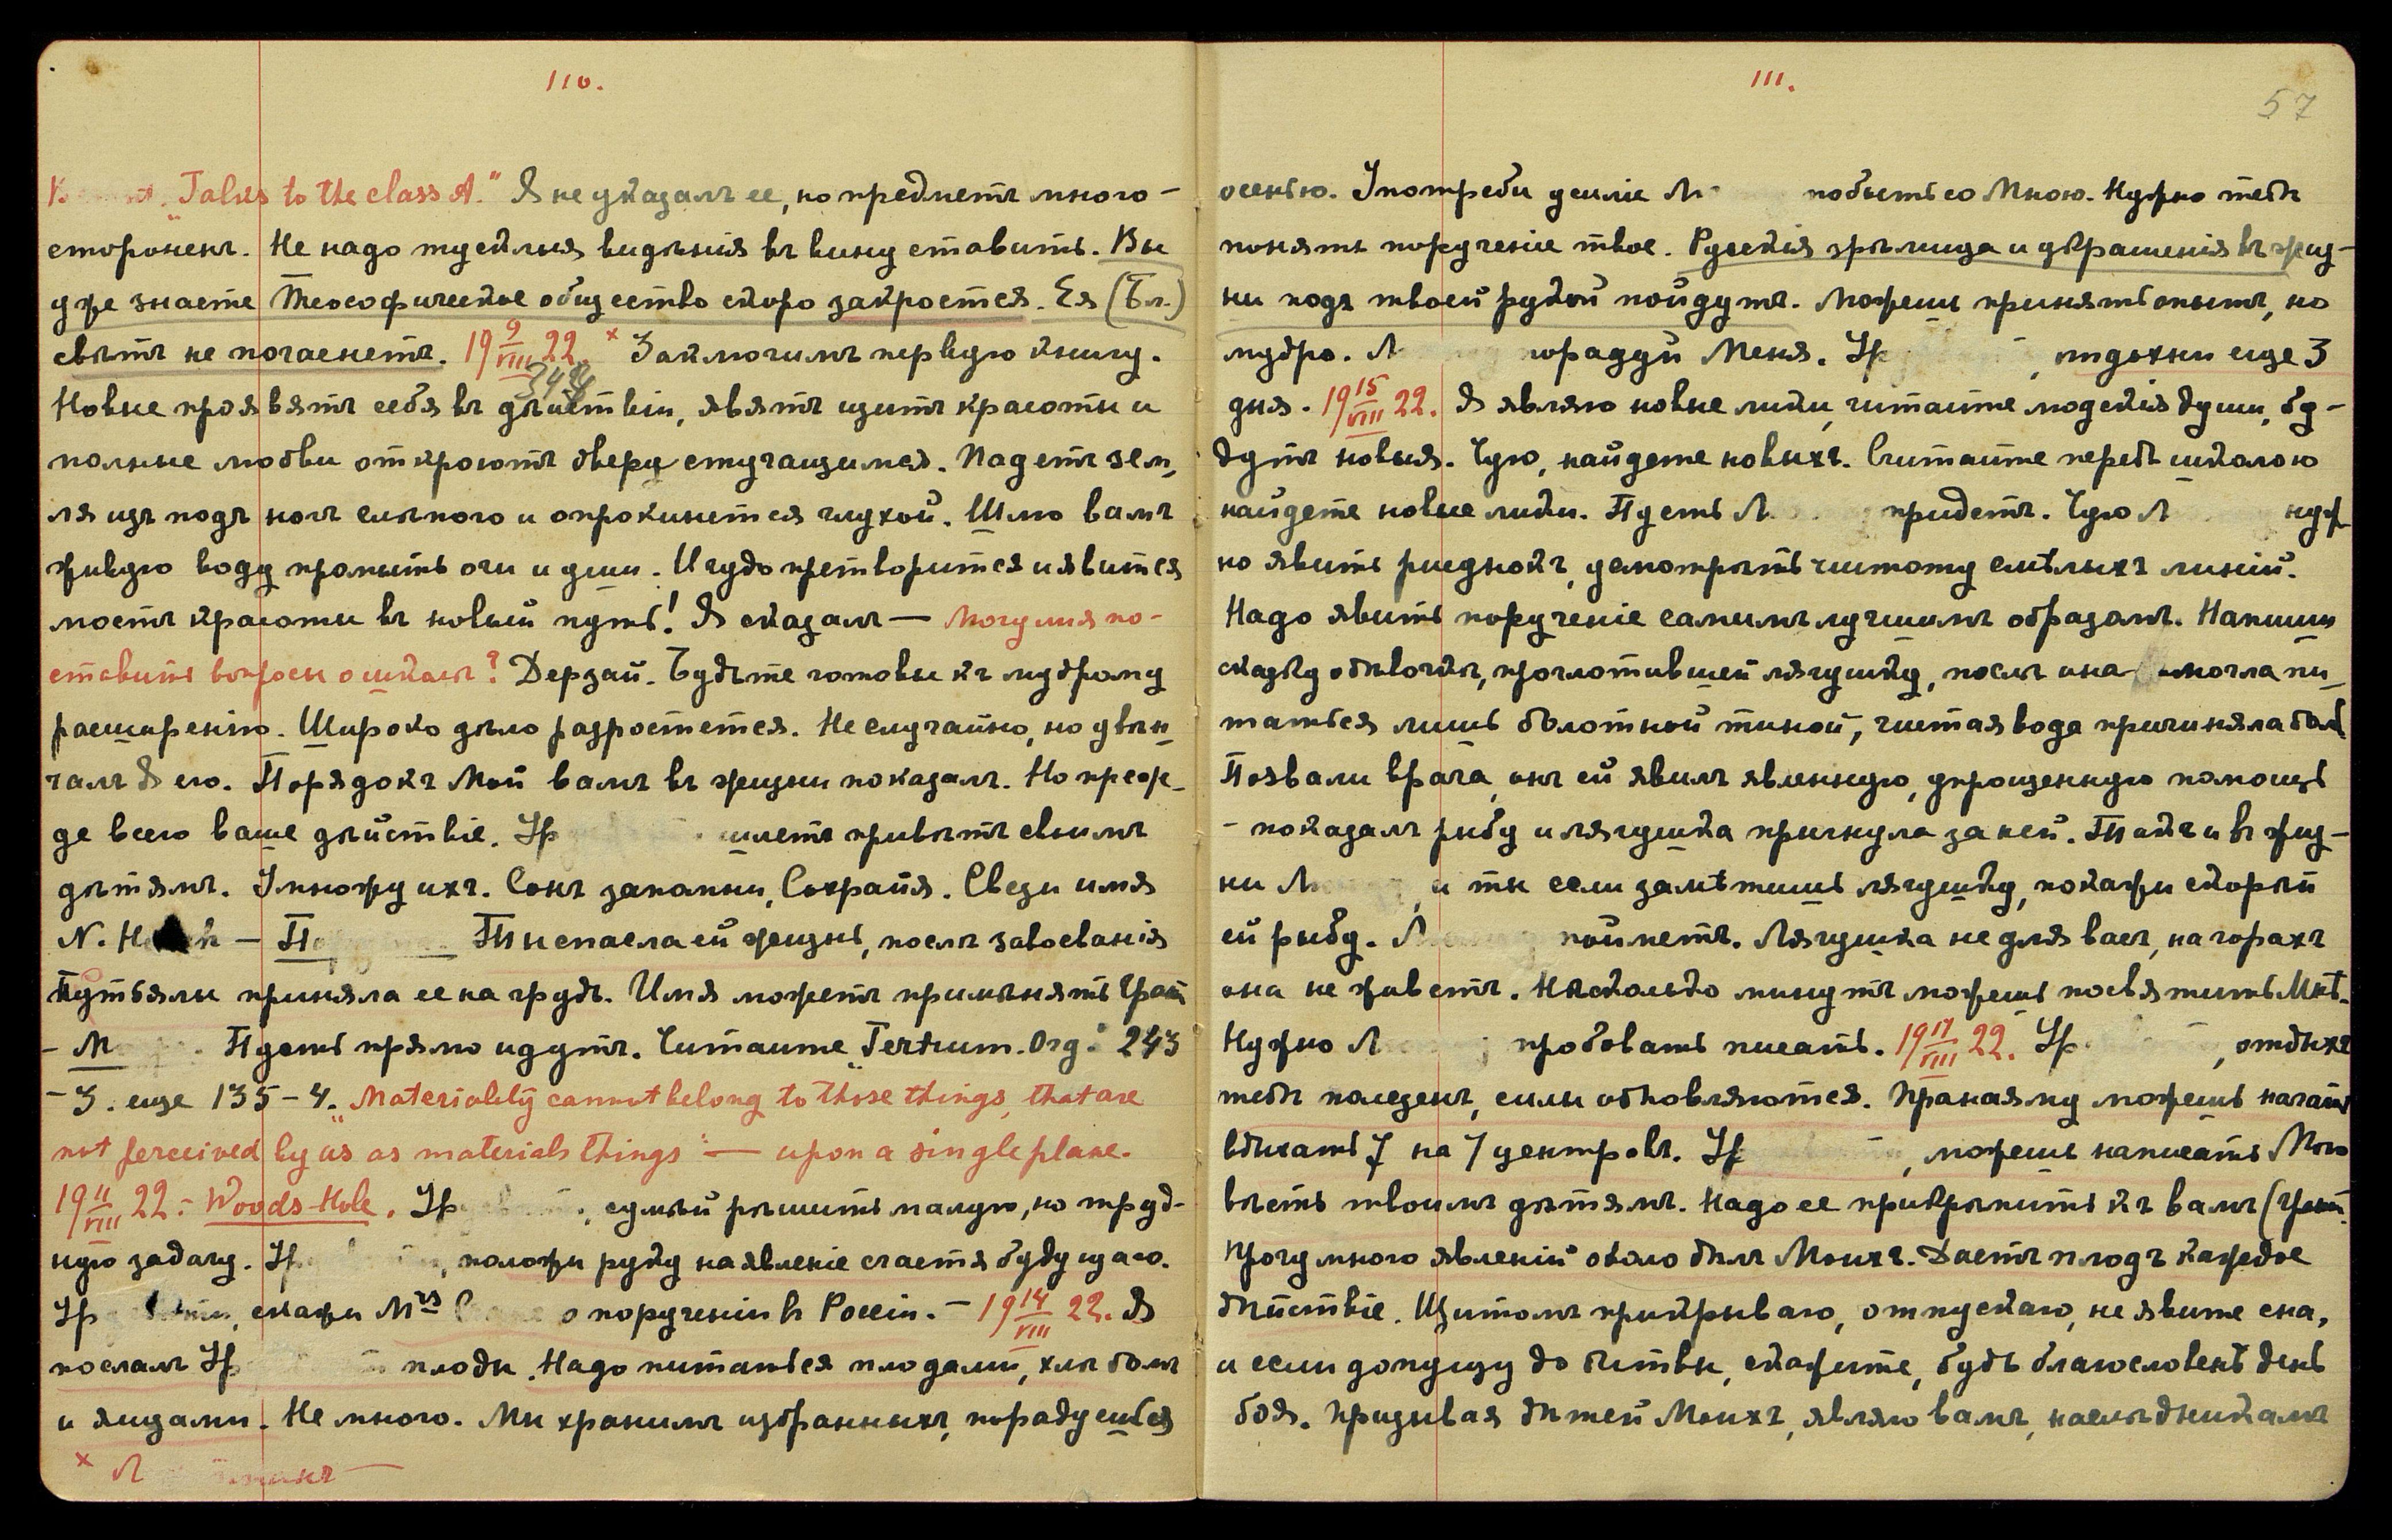 110.
"Talks to the class A." Я не указалъ ее, но предметъ много-
стороненъ. Не надо тусклыя видѣнія въ вину ставить. Вы
уже знаете Теософическое общество скоро закроется. Ея (Бл.)
свѣтъ не погаснетъ. 19 9/VIII 22. × Заключимъ первую книгу.
Новые проявятъ себя въ дѣйствіи, явятъ щитъ красоты и
полные любви откроютъ дверь стучащимся. Падетъ зем-
ля изъ подъ ногъ слѣпого и опрокинется глухой. Шлю вамъ
живую воду промыть очи и уши. И чудо претворится и явится
мостъ красоты въ новый путь! Я сказалъ —
ставить вопросы о школѣ? Дерзай. Будьте готовы къ мудрому
расширенію. Широко дѣло разростется. Не случайно, но
чалъ Я его. Порядокъ Мой вамъ въ жизни показалъ. Но преж-
де всего ваше дѣйствіе. Ур шлетъ привѣтъ своимъ
дѣтямъ. Умножу ихъ. Сонъ запомни, Сохраня. Свези имя
N. — Ты спасла ей жизнь, послѣ завоеванія
приняла ее на грудь. Имя можетъ примѣнять
- М Пусть прямо идутъ. Читайте "Tertium. Org." 243
- 3. еще 135-4. "Materiality cannot belong to those things, that are
not perceived by us as materials things" — upon a single plane.
19 11/VIII 22. - Woods-Hole. Ур , сумѣй рѣшить малую, но труд-
ную задачу. Ур , положи руку на явленіе счастья будущаго.
Ур , скажи Mrs о порученіи въ Россіи. - 19 14/VIII 22. Я
послалъ Ур плоды. Надо питаться плодами, хлѣбомъ
и яицами. Не много. Мы хранимъ избранныхъ, порадуешься
× Л
111.
57
осенью. Употреби усиліе Л побыть со Мною. Нужно тебѣ
понять порученіе твое. Русскія зрѣлища и украшенія въ жиз-
ни подъ твоей рукой пойдутъ. Можешь принять опытъ, но
мудро. Л порадуй Меня. Ур , отдохни еще 3
дня. 19 15/VIII 22. Я являю новые лики, читайте людскія души, бу-
дутъ новыя. Чую, найдете новыхъ. Считайте передъ школою
найдете новые лики. Пусть Л придетъ. Чую Л нуж
но явить рисунокъ, усмотрѣть чистоту смѣлыхъ линій.
Надо явить порученіе самымъ лучшимъ образомъ. Напиши
сказку о дѣвочкѣ, проглотившей лягушку, послѣ она могла пи-
таться лишь болотной тиной, чистая вода причиняла боль
Позвали врача, онъ ей явилъ явленную, упрощенную помощь
- показалъ рыбу и лягушка прыгнула за ней. Такъ и въ жиз-
ни Л , и ты если замѣтишь лягушку, покажи скорѣй
ей рыбу. Л пойметъ. Лягушка не для васъ, на горахъ
она не живетъ. Нѣсколько минутъ можешь посвятить Мнѣ.
Нужно Л пробовать писать. 19 17/VIII 22. Ур , отдыхъ
тебѣ полезенъ, силы обновляются. Пранаяму можешь начать
вдыхать 7 на 7 центровъ. Ур , можешь написать Мою
вѣсть твоимъ дѣтямъ. Надо ее прикрѣпить къ вамъ
много явленій около дѣлъ Моихъ. Даетъ плодъ каждое
дѣйствіе. Щитомъ прикрываю, отпускаю, не явите сна,
и если допущу до битвы, скажите, будь благословенъ день
боя. Призывая дѣтей Моихъ, являю вамъ, наслѣдникамъ